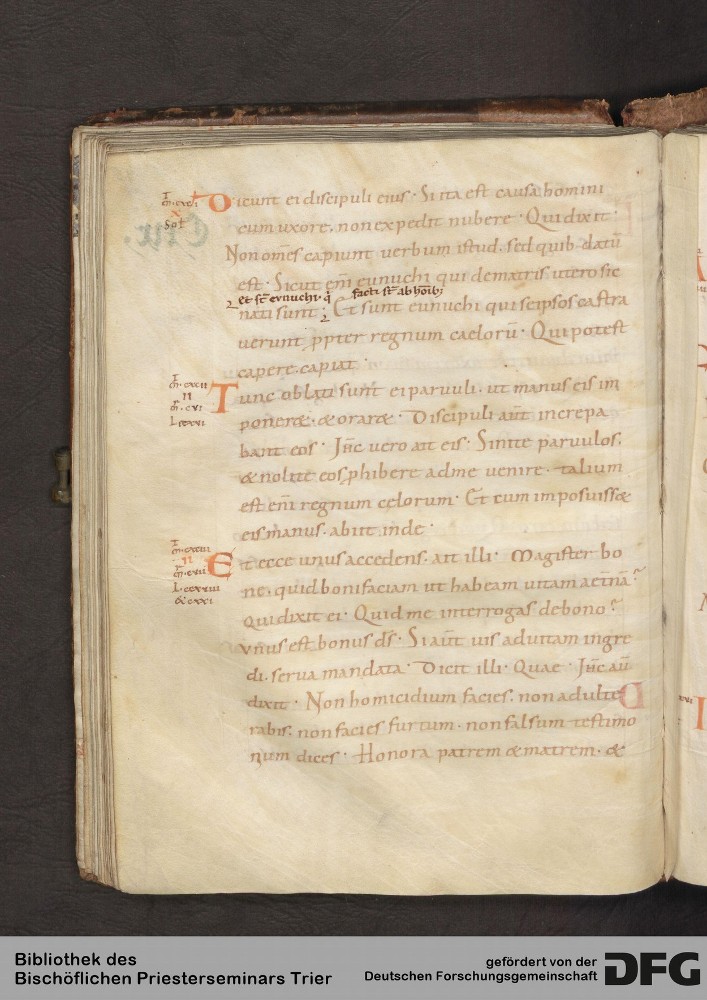 Dicunt ei discipuli eius· Si ita est causa homini
cum uxore, non expedit nubere· Qui dixit·
Non om̅s capiunt uerbum istud, sed quib· datū
est· Sicut eni̅ eunuchi qui dematris utero sic
et st̅ eunuchi· q̅ facti st̅ ab homib;
nati sunt; Et sunt eunuchi qui seipsos castra
uerunt p̅pter regnum caelorū· Qui potest
capere, capiat·
Tunc oblati sunt ei paruuli, ut manus eis im
poner&, & orar&· Discipuli aut̅ increpa
bant eos· Ih̅c uero ait eis· Sinite paruulos,
& nolite eos phibere ad me uenire· talium
est eni̅ regnum celorum· Et cum imposuiss&
eis manus, abiit inde·
Et ecce unus accedens, ait illi· Magister bo
ne, quid boni faciam ut habeam uitam aet̅nā?
Qui dixit ei· Quid me interrogas de bono?
Vnus est bonus d̅s· Si aut̅ uis ad uitam ingre
di, serua mandata· Dicit illi· Quae· Ih̅c au̅
dixit· Non homicidium facies, non adulte
rabis, non facies furtum, non falsum testimo
nium dices· Honora patrem & matrem, &
Bibliothek des
Bischöflichen Priesterseminars Trier
gefördert von der
Deutschen Forschungsgemeinschaft
DFG